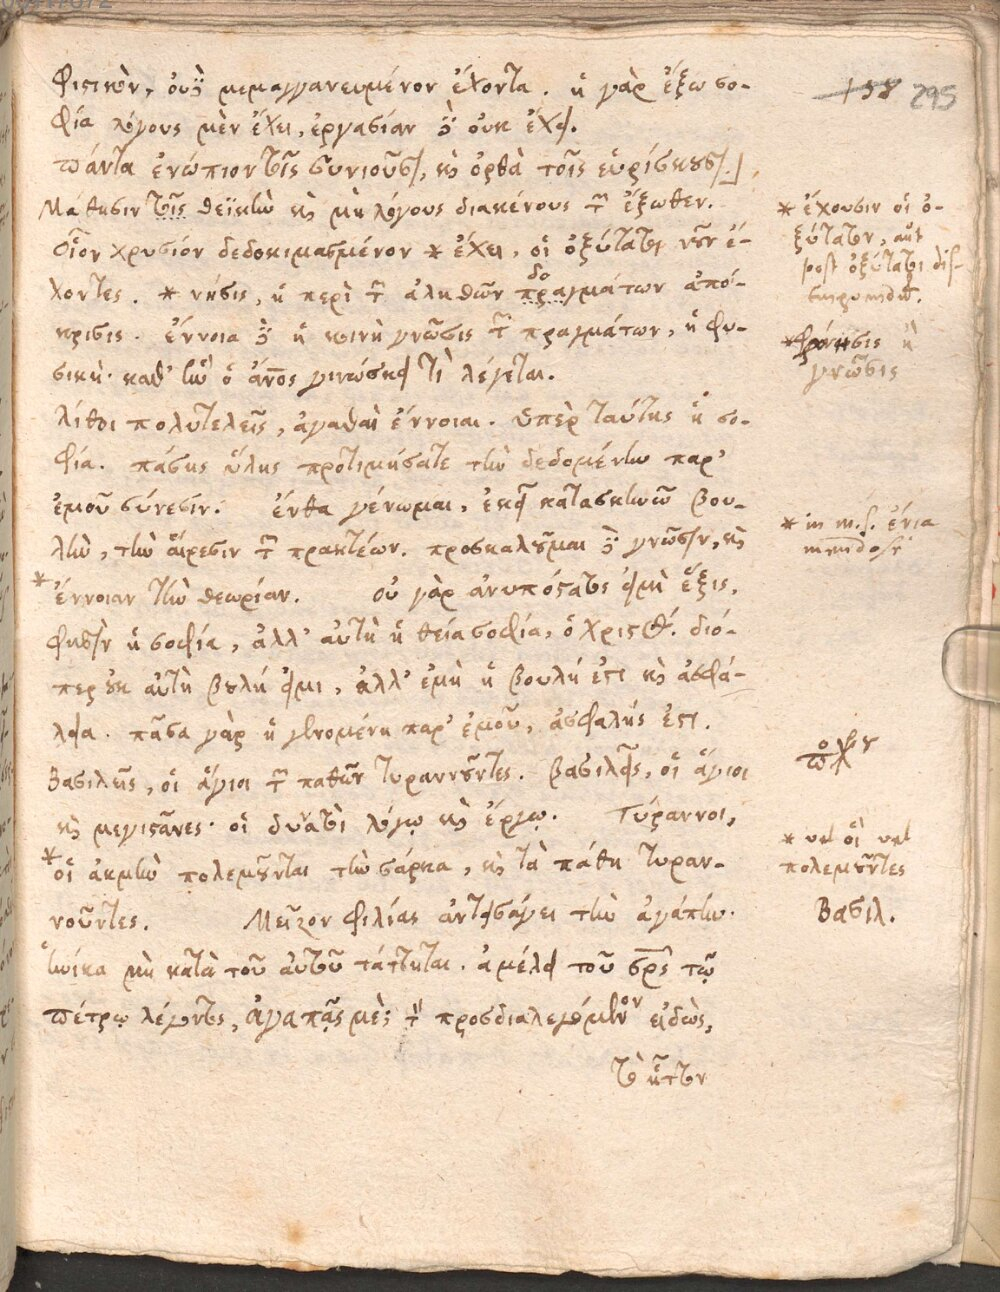 φιστικὸν, οὐδὲ μεμαγγανευμένον ἔχοντα. ἡ γὰρ ἔξω σο-
φία λόγους μὲν ἔχει, ἐργασίαν δὲ οὐκ ἔχει.
πάντα ἐνώπιον τοῖς συνιοῦσι, καὶ ὀρθὰ τοῖς εὑρίσκουσι.
Μάθησιν τοῖς θεϊκὴν καὶ μὴ λόγους διακένους τῶν ἔξωθεν.
οἷον χρυσίον δεδοκιμασμένον * ἔχει, οἱ ὀξύτατοι νοῦν ἔ-
χοντες. * νησις, ἡ περὶ τῶν ἀληθῶν πραγμάτων ἀπό-
κρισις. ἔννοια δὲ ἡ κοινὴ γνῶσις τῶν πραγμάτων, ἡ φυ-
σικὴ· καθ' ἣν ὁ ἄνος γινώσκει τὶ λέγεται.
λίθοι πολυτελεῖς, ἀγαθαὶ ἔννοιαι. ὑπὲρ ταύτης ἡ σο-
φία. πάσης ὕλης προτιμήσατε τὴν δεδομένην παρ'
ἐμοῦ σύνεσιν. ἔνθα γένωμαι, ἐκεῖ κατασκηνῶ βου-
λὴν, τὴν αἵρεσιν τῶν πρακτέων. προσκαλοῦμαι δὲ γνῶσιν, καὶ
* ἔννοιαν τὴν θεωρίαν. οὐ γὰρ ἀνυπόστατός εἰμὶ ἕξις,
φησὶν ἡ σοφία, ἀλλ' αὐτὴ ἡ θεία σοφία, ὁ χριστός. διό-
περ οὐκ αὐτὴ βουλή εἰμι, ἀλλ' ἐμὴ ἡ βουλή ἐστι καὶ ἀσφά-
λεια. πᾶσα γὰρ ἡ γινομένη παρ' ἐμοῦ, ἀσφαλής ἐστι.
Βασιλεῖς, οἱ ἅγιοι τῶν παθῶν τυραννοῦντες. βασιλεῖς, οἱ ἅγιοι
καὶ μεγιστᾶνες· οἱ δυνατοὶ λόγῳ καὶ ἔργῳ. Τύραννοι,
* οἱ ἀκμὴν πολεμοῦνται τὴν σάρκα, καὶ τὰ πάθη τυραν-
νοῦντες. Μεῖζον φιλίας ἀντεισάγει τὴν ἀγάπην·
ἡνίκα μὴ κατὰ τοῦ αὐτοῦ τάττηται. ἀμέλει τοῦ σρς τῷ
πέτρῳ λέγοντος, ἀγαπᾷς με; τὸν προσδιαλεγόμενον εἰδὼς,
τὸ ἧττον
158 295
* ἔχουσιν οἱ ὀ-
ξύτατον, aut
post ὀξύτατοι dis-
tinguendum.
* φρόνησις ἢ
γνῶσις
* in m.s. ἔνια
mendosè
* vel οἱ vel
πολεμοῦντες
Βασιλ.